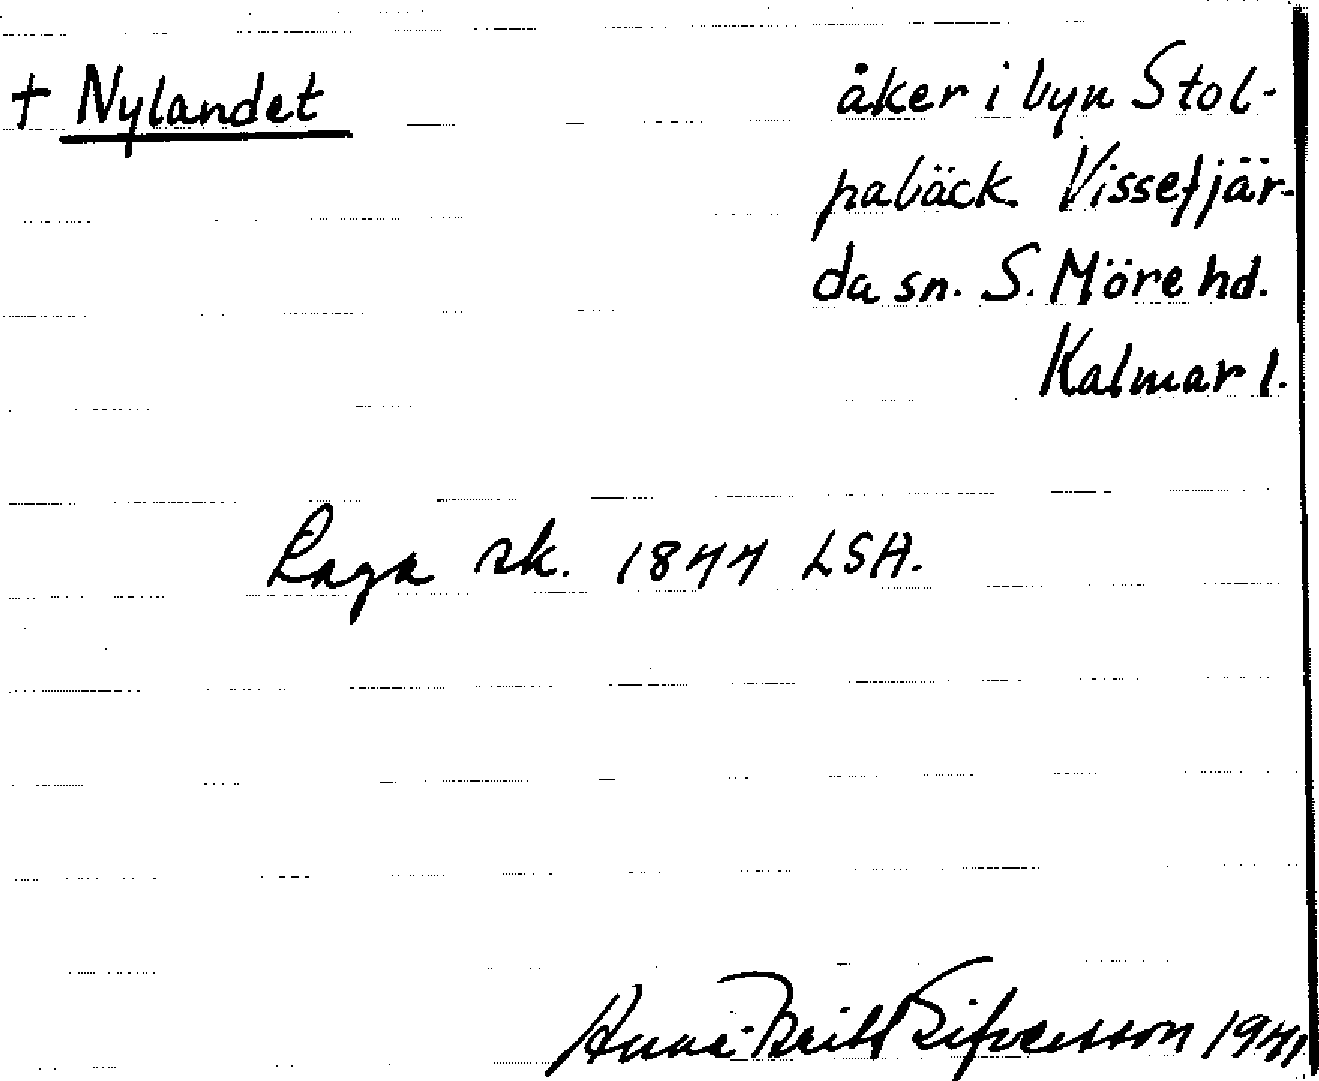 † Nylandet
åker i byn Stol-
pabäck Vissefjär-
da sn. S. Möre hd.
Kalmar l.
Laga sk. 1844 LSA.
Anna-Britt Sifvertsson 1941